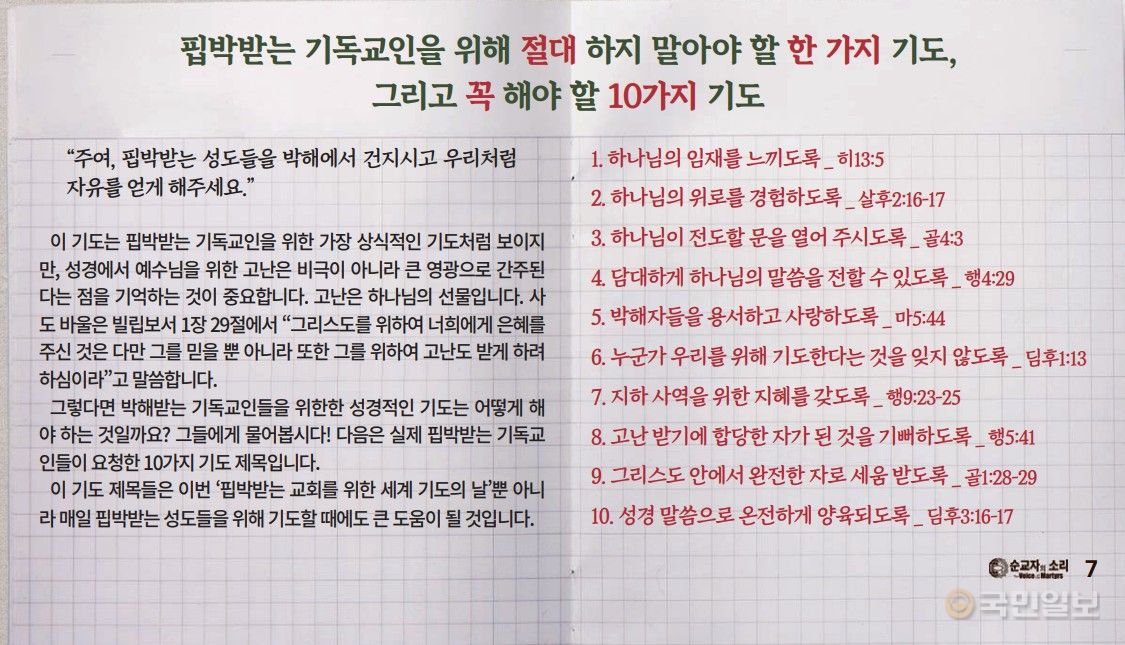 핍박받는 기독교인을 위해 절대 하지 말아야 할 한 가지 기도,
그리고 꼭 해야 할 10가지 기도
“주여, 핍박받는 성도들을 박해에서 건지시고 우리처럼
자유를 얻게 해주세요.”
이 기도는 핍박받는 기독교인을 위한 가장 상식적인 기도처럼 보이지
만, 성경에서 예수님을 위한 고난은 비극이 아니라 큰 영광으로 간주된
다는 점을 기억하는 것이 중요합니다. 고난은 하나님의 선물입니다. 사
도 바울은 빌립보서 1장 29절에서 “그리스도를 위하여 너희에게 은혜를
주신 것은 다만 그를 믿을 뿐 아니라 또한 그를 위하여 고난도 받게 하려
하심이라”고 말씀합니다.
그렇다면 박해받는 기독교인들을 위한한 성경적인 기도는 어떻게 해
야 하는 것일까요? 그들에게 물어봅시다! 다음은 실제 핍박받는 기독교
인들이 요청한 10가지 기도 제목입니다.
이 기도 제목들은 이번 ‘핍박받는 교회를 위한 세계 기도의 날’뿐 아니
라 매일 핍박받는 성도들을 위해 기도할 때에도 큰 도움이 될 것입니다.
1. 하나님의 임재를 느끼도록 _ 히13:5
2. 하나님의 위로를 경험하도록 _ 살후2:16-17
3. 하나님이 전도할 문을 열어 주시도록 _ 골4:3
4. 담대하게 하나님의 말씀을 전할 수 있도록 _ 행4:29
5. 박해자들을 용서하고 사랑하도록 _ 마5:44
6. 누군가 우리를 위해 기도한다는 것을 잊지 않도록 _ 딤후1:13
7. 지하 사역을 위한 지혜를 갖도록 _ 행9:23-25
8. 고난 받기에 합당한 자가 된 것을 기뻐하도록 _ 행5:41
9. 그리스도 안에서 완전한 자로 세움 받도록 _ 골1:28-29
10. 성경 말씀으로 온전하게 양육되도록 _ 딤후3:16-17
순교자의 소리 7
The Voice of the Martyrs
국민일보